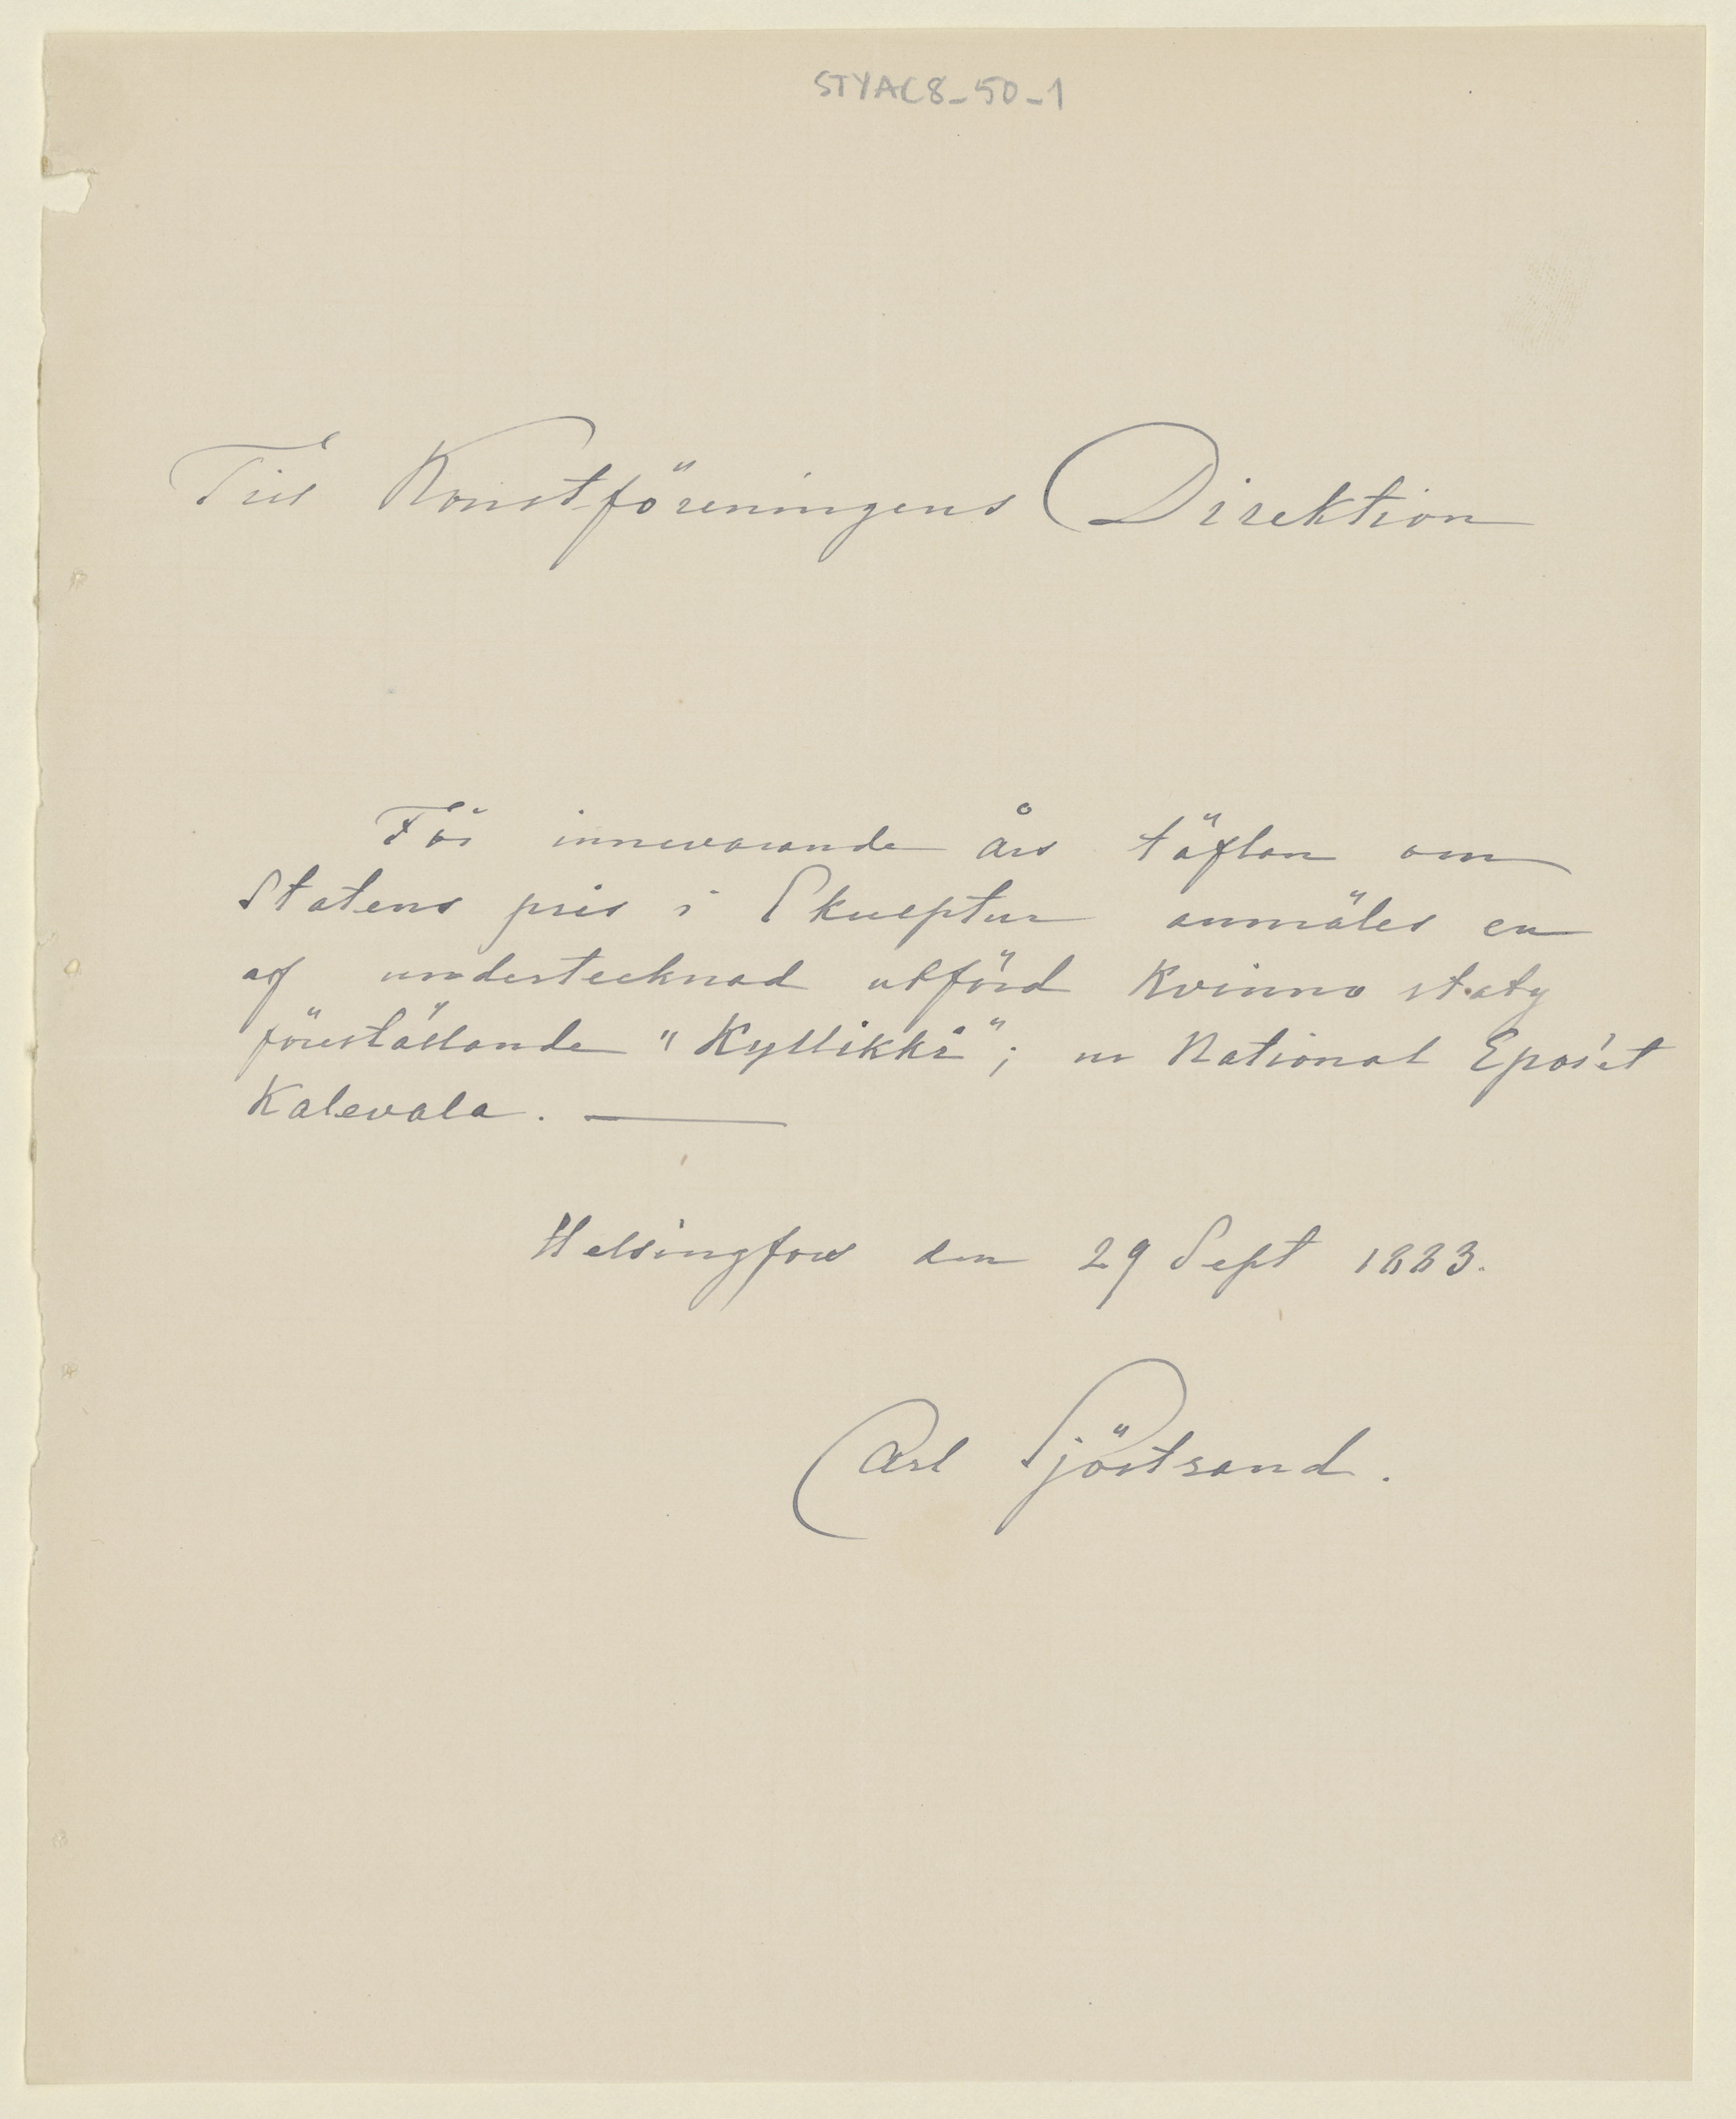 STYAC8_50_1
Till Konstföreningens Direktion
För innevarande års täflan om
Statens pris i Skulptur anmäles en
af undertecknad utförd Kvinno staty
föreställande "Kyllikki"; ur National Epos'et
Kalevala. —
Helsingfors den 29 Sept 1883.
Carl Sjöstrand.